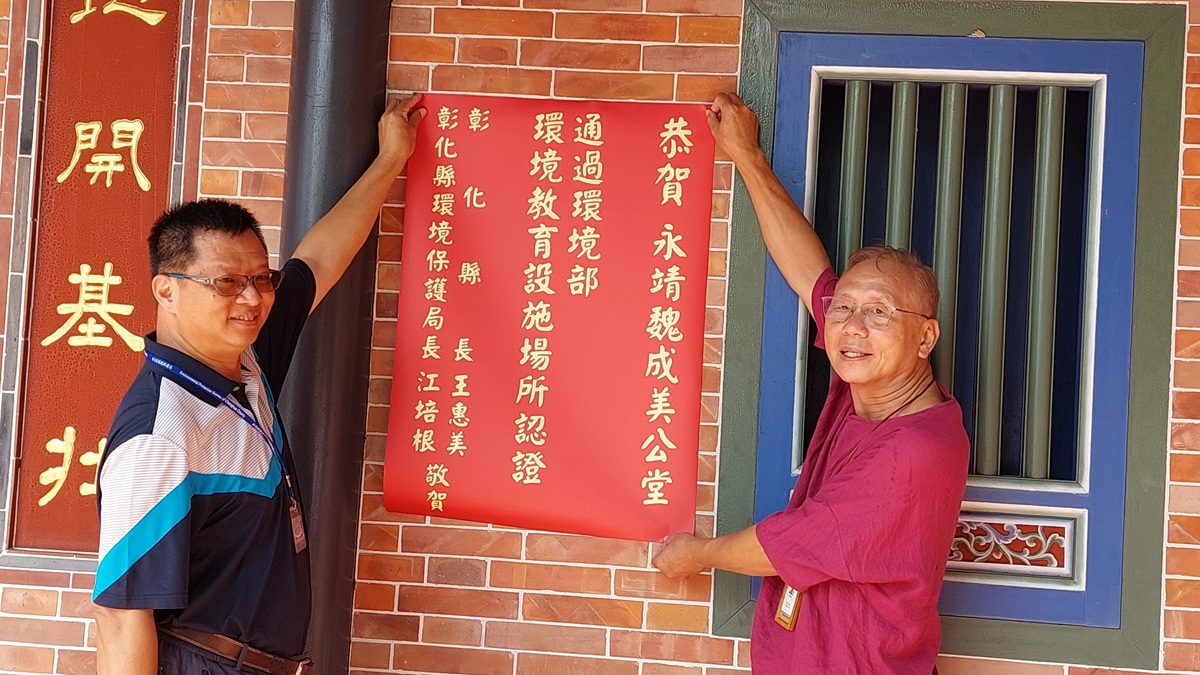 恭賀 永靖魏成美公堂
通過環境部
環境教育設施場所認證
彰化縣長 王惠美
彰化縣環境保護局長 江培根 敬賀
開基